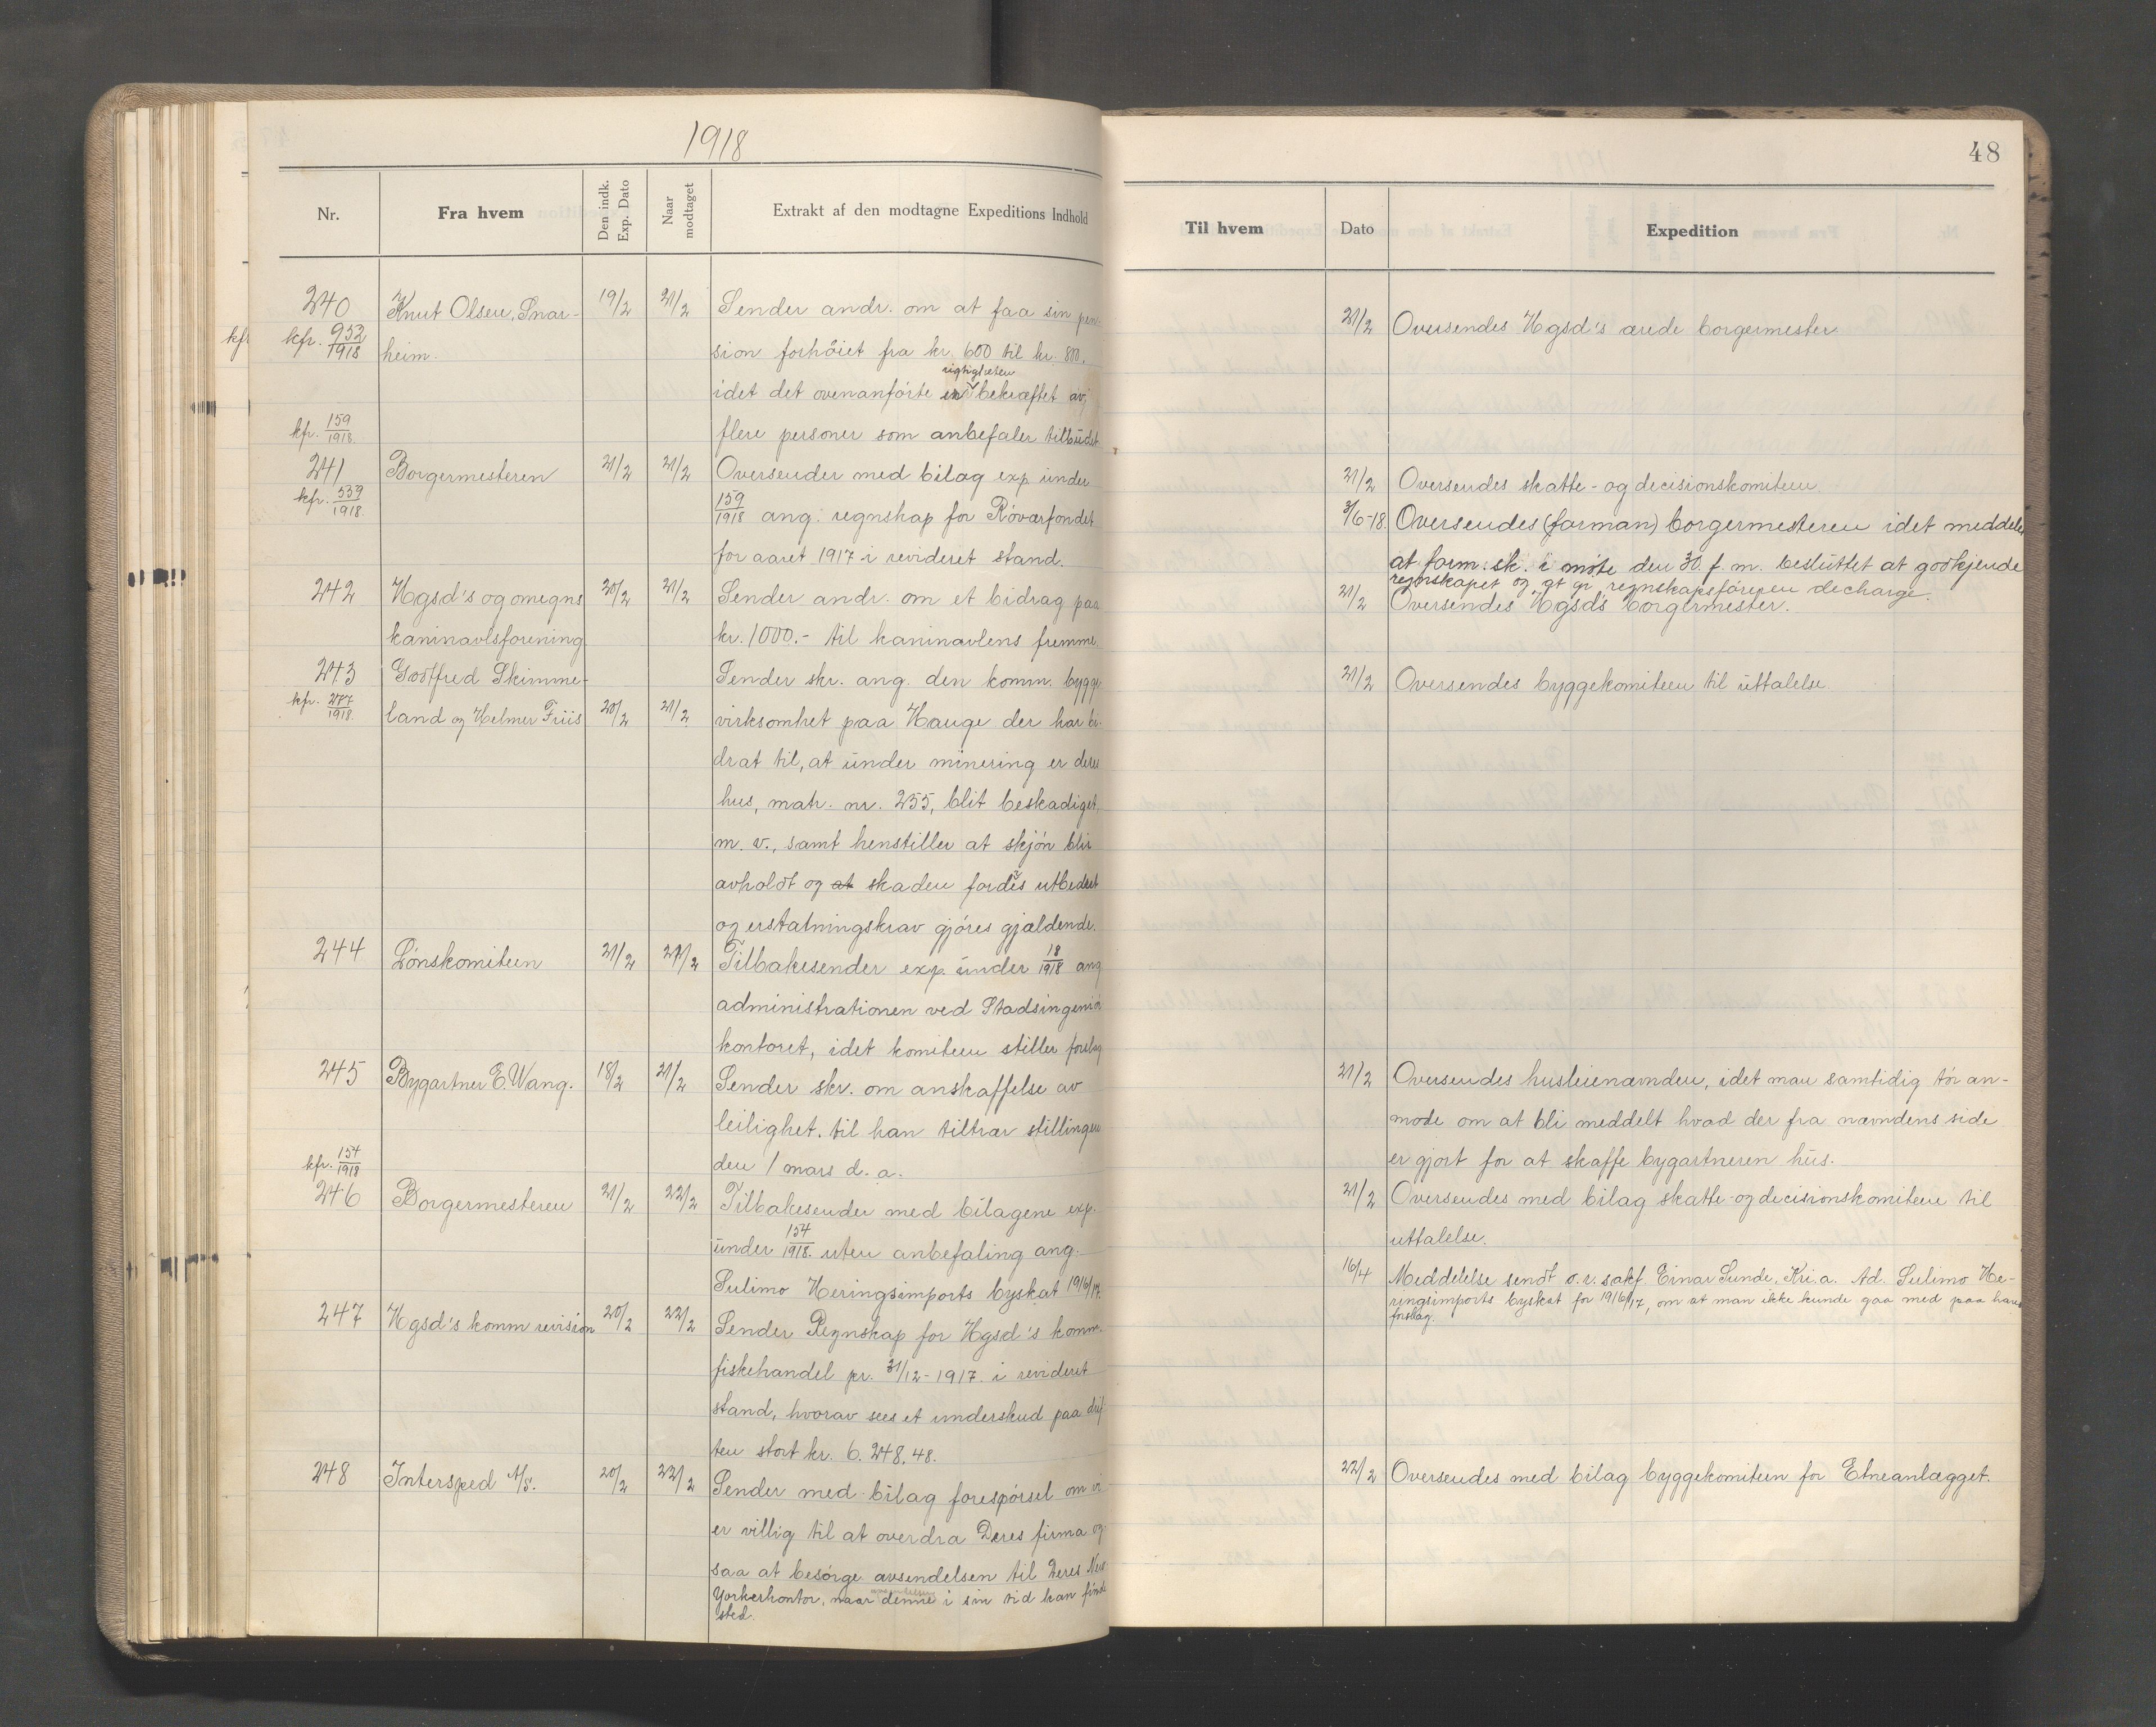 1918
48
Nr.
Fra hvem
Den indk. Exp. Dato
Naar modtaget
Extrakt af den modtagne Expeditions Indhold
Til hvem
Dato
Expedition
240 Knut Olsen, Snar- 19/2 21/2 Sender andr. om at faa sin pen-
kfr. 952/1918 heim. sion forhöiet fra kr. 600 til kr. 800,
rigtigheten
idet det ovenanförte er bekræftet av
kfr. 159/1918 flere personer som anbefaler tilbudet
21/2 Oversendes Hgsd's ærede borgermester.
241 Borgermesteren 21/2 21/2 Oversender med bilag exp. under
kfr. 539/1918. 159/1918 ang. regnskap for Röværfondet
for aaret 1917 i revideret stand.
21/2 Oversendes skatte- og decisionskomiteen
3/6-18. Oversendes (forman) borgermesteren idet meddeles
at form.sk. i möte den 30. f. m. besluttet at godkjende
regnskapet og at gi regnskapsföreren decharge.
242 Hgsd's og omegns 20/2 21/2 Sender andr. om et bidrag paa
kaninavlsforening kr. 1000.- til kaninavlens fremme.
21/2 Oversendes Hgsd's borgermester.
243 Godtfred Skimme- Sender skr. ang. den komm. bygge-
kfr. 277/1918. land og Helmer Friis 20/2 21/2 virksomhet paa Hauge der har bi-
drat til, at under minering er deres
hus, matr. nr. 255, blit beskadiget,
m. v., samt henstiller at skjön blir
avholdt og at skaden fordes utbedret
og erstatningskrav gjöres gjældende.
21/2 Oversendes byggekomiteen til uttalelse.
244 Lönskomiteen 21/2 21/2 Tilbakesender exp. under 18/1918 ang
administrationen ved Stadsingeniör
kontoret, idet komiteen stiller forslag
245 Bygartner E. Wang. 18/2 21/2 Sender skr. om anskaffelse av
leilighet. til han tiltrær stillingen
den 1 mars d. a.
21/2 Oversendes husleienævnden, idet man samtidig tör an-
mode om at bli meddelt hvad der fra nævndens side
er gjort for at skaffe bygartneren hus.
kfr. 154/1918
246 Borgermesteren 21/2 22/2 Tilbakesender med bilagene exp.
under 154/1918. uten anbefaling ang.
Sulimo Heringsimports byskat 1916/17.
21/2 Oversendes med bilag skatte- og decisionskomiteen til
uttalelse.
16/4 Meddelelse sendt o.r. sakf. Einar Sunde, Kri.a. Ad. Sulimo He-
ringsimports byskat for 1916/17, om at man ikke kunde gaa med paa hans
forslag.
247 Hgsd's komm revision 20/2 22/2 Sender Regnskap for Hgsd's komm.
fiskehandel pr. 31/12-1917. i revideret
stand, hvorav sees et underskud paa drif-
ten stort kr. 6.248.48.
248 Intersped A/S. 20/2 22/2 Sender med bilag forespörsel om vi
er villig til at overdra Deres firma og-
saa at besörge avsendelsen til Deres New
Yorkerkontor, naar denne i sin tid kan finde
sted.
22/2 Oversendes med bilag byggekomiteen for Etneanlægget.